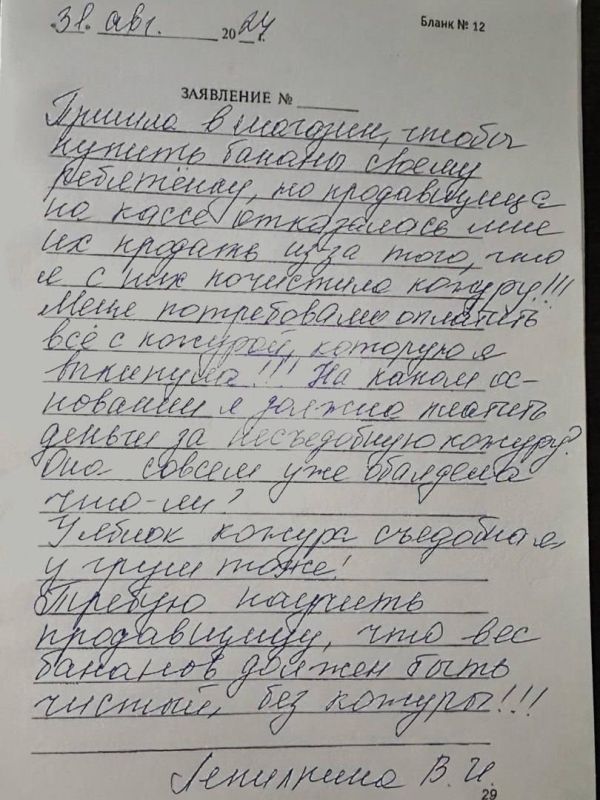 31. авг. 2024 г.
Бланк № 12
ЗАЯВЛЕНИЕ №
Пришла в магазин, чтобы
купить бананы своему
ребятёнку, но продавщица
на кассе отказалась мне
их продать из за того, что
я с них почистила кожуру!!!
Меня потребовали оплатить
всё с кожурой, которую я
выкинула!!! На каком ос-
новании я должна платить
деньги за несъедобную кожуру?
Она совсем уже обалдела
что-ли?
У яблок кожура съедобная
у груш тоже!
Требую научить
продавщицу, что вес
бананов должен быть
чистый, без кожуры!!!
В. И.
29